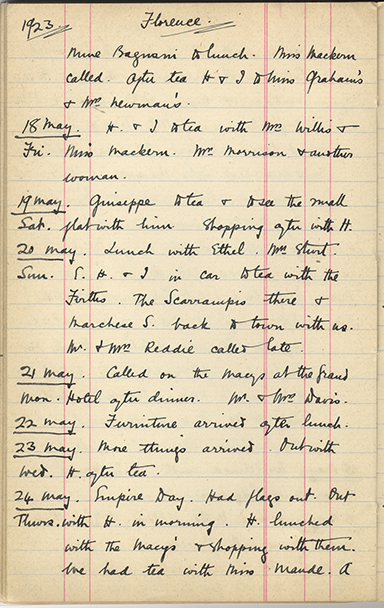 1923. Florence.
Mme Bagnani to lunch. Miss Mackern
called. After tea H & I to Miss Graham's
& Mrs Newman's.
18 May. H. & I to tea with Mrs Willis &
Fri. Miss Mackern. Mr. Morrison & another
woman.
19 May. Giuseppe to tea & to see the small
Sat. flat with him Shopping after with H.
20 May. Lunch with Ethel. Mrs Sturt.
Sun. S. H. & I in car to tea with the
Firths. The Scarrampis there &
Marchese S. back to town with us.
Mr. & Mrs Reddie called late.
21 May. Called on the Macys at the Grand
Mon. Hotel after dinner. Mr. & Mrs Davis.
22 May. Furniture arrived after lunch.
23 May. More things arrived. Out with
Wed. H. after tea.
24 May. Empire Day. Had flags out. Out
Thurs. with H. in morning. H. lunched
with the Macy's & shopping with them.
We had tea with Miss Maude. A